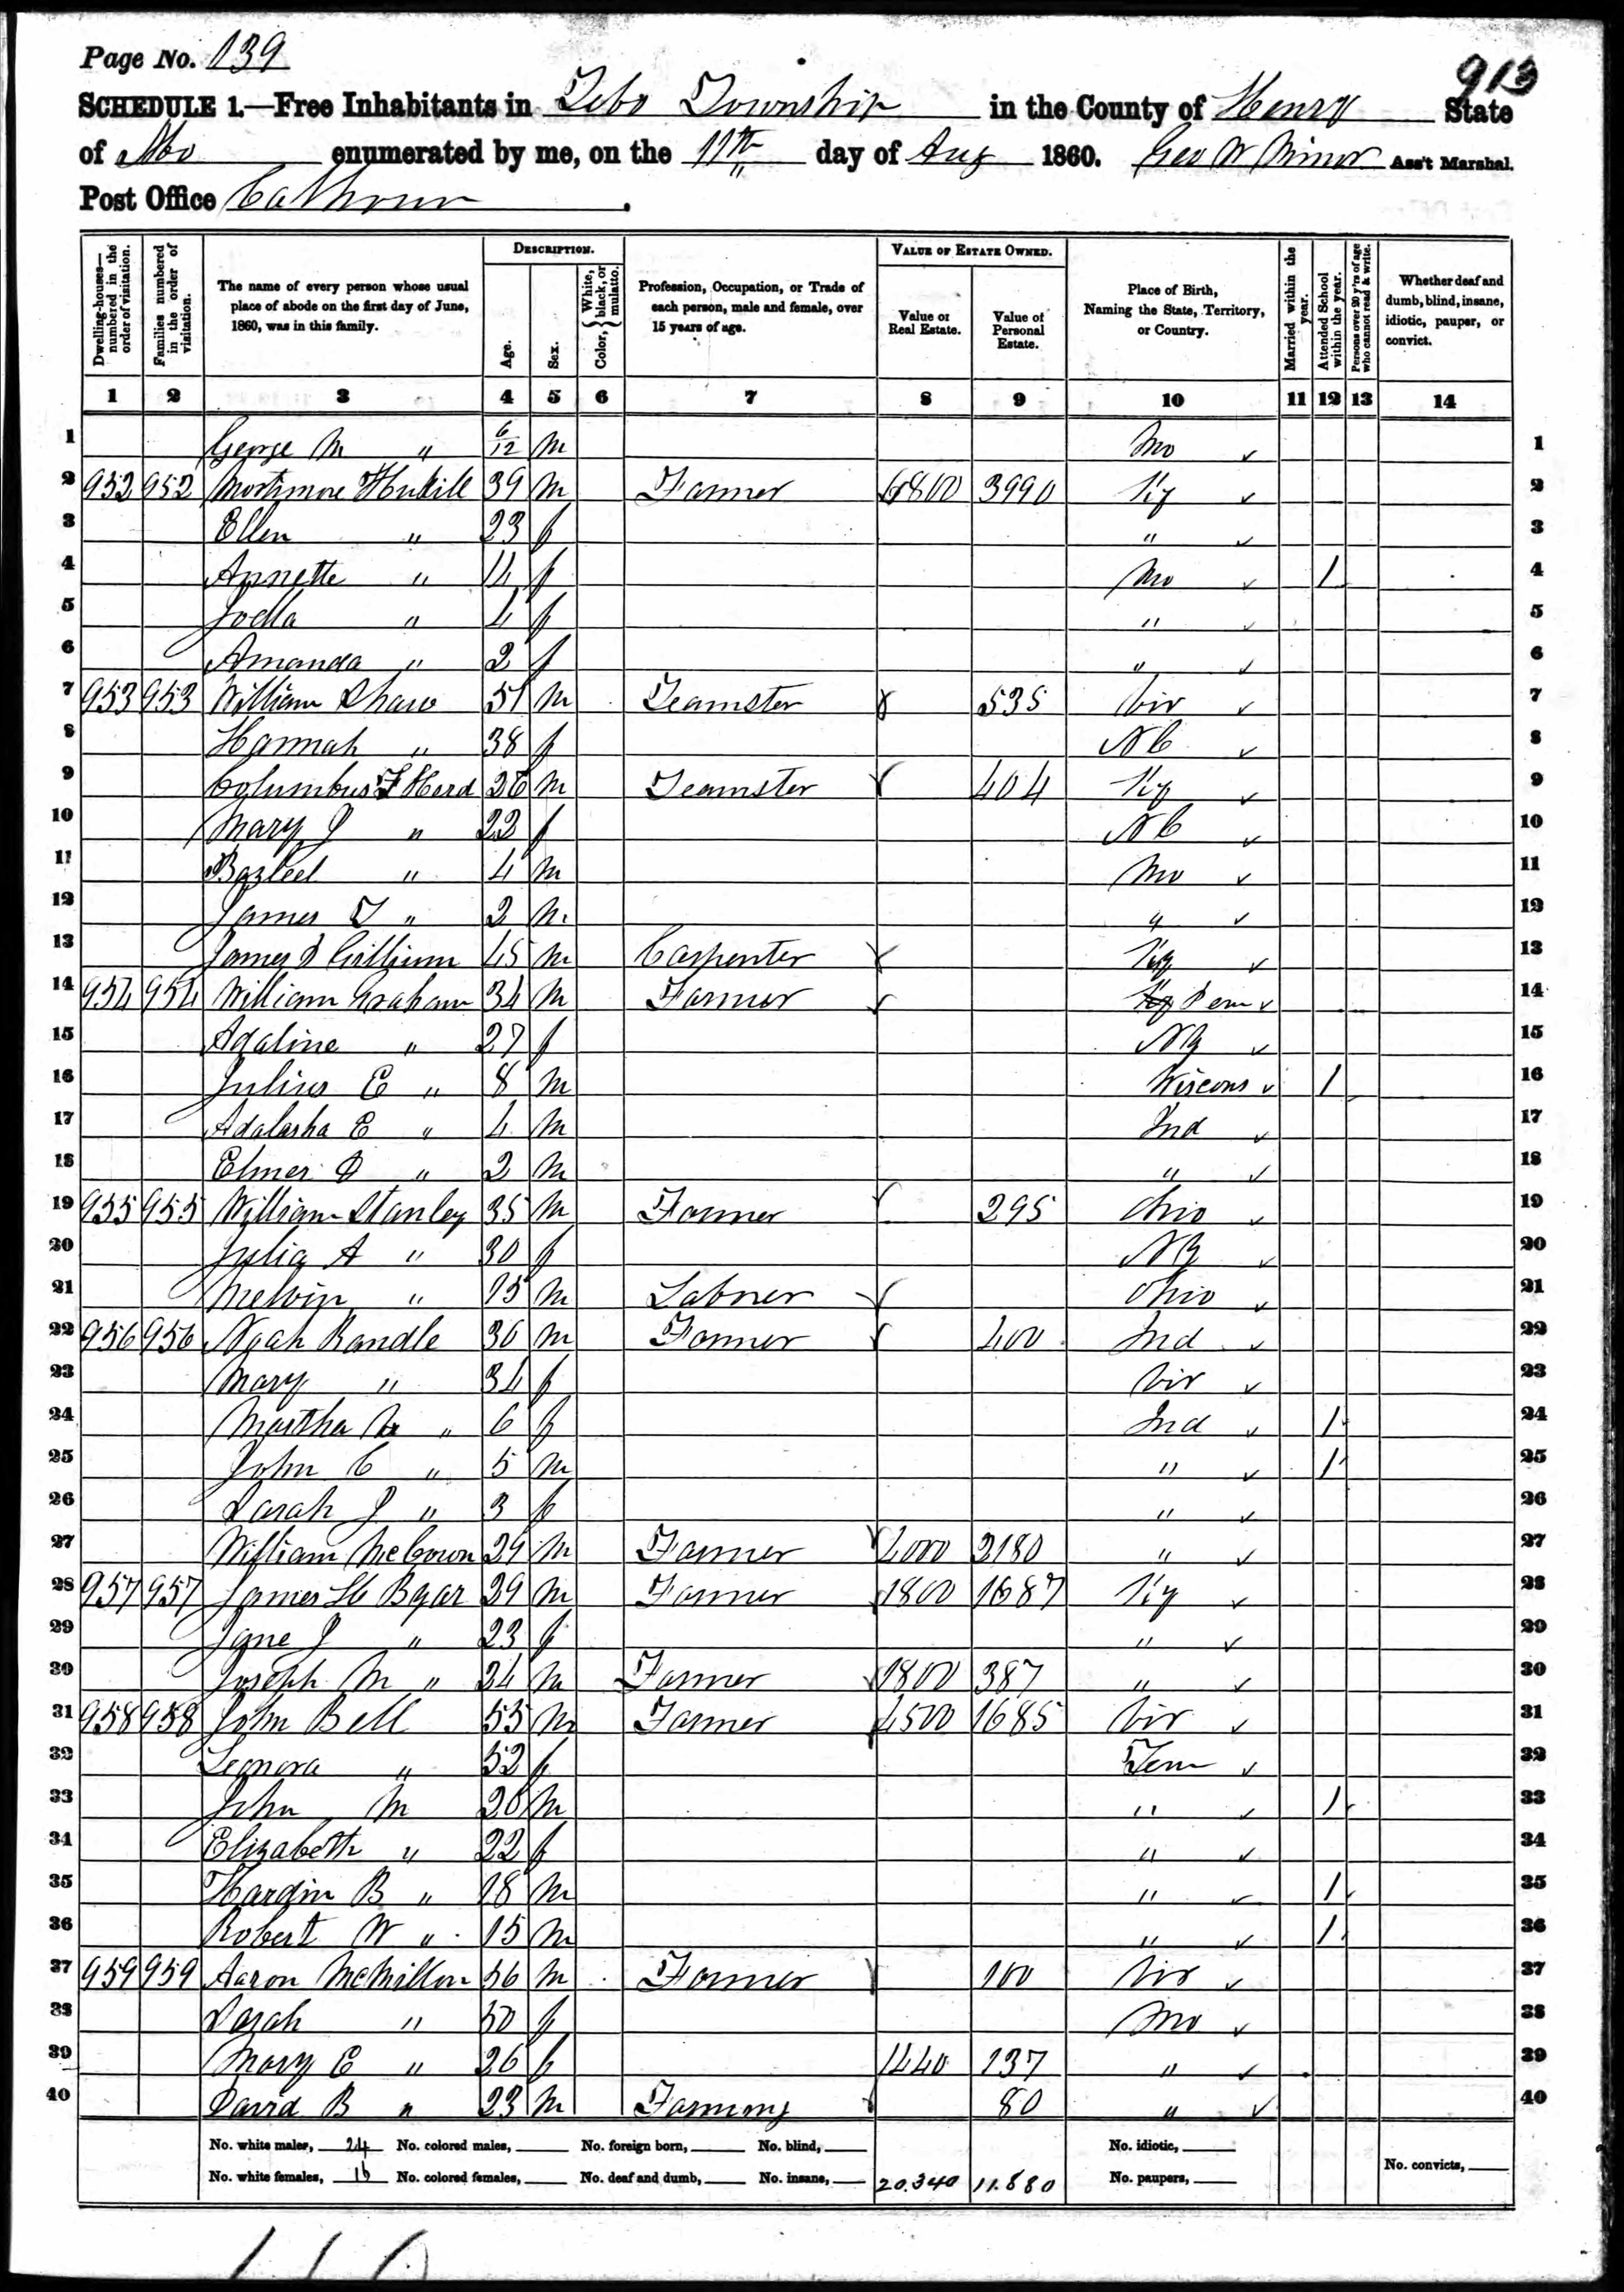 Page No. 139
913
SCHEDULE 1.—Free Inhabitants in Tebo Township in the County of Henry State
of Mo enumerated by me, on the 11th day of Aug 1860. Geo W Minor Ass't Marshal.
Post Office Calhoun.
Dwelling-houses—numbered in the order of visitation.
Families numbered in the order of visitation.
The name of every person whose usual place of abode on the first day of June, 1860, was in this family.
DESCRIPTION.
Age.
Sex.
Color, { White, black, or mulatto.
Profession, Occupation, or Trade of each person, male and female, over 15 years of age.
VALUE OF ESTATE OWNED.
Value of Real Estate.
Value of Personal Estate.
Place of Birth, Naming the State, Territory, or Country.
Married within the year.
Attended School within the year.
Persons over 20 y'rs of age who cannot read & write.
Whether deaf and dumb, blind, insane, idiotic, pauper, or convict.
1 2 3 4 5 6 7 8 9 10 11 12 13 14
1 George M " 6/12 m Mo 1
2 952 952 Mortimore Hukill 39 m Farmer 6800 3990 Ky 2
3 Ellen " 23 f " 3
4 Annette " 14 f Mo 1 4
5 " 4 f " 5
6 Amanda " 2 f " 6
7 953 953 William Shaw 51 m Teamster 535 Vir 7
8 Hannah " 38 f NC 8
9 Columbus F Herd 26 m Teamster 404 Ky 9
10 Mary J " 22 f NC 10
11 Bazleel " 4 m Mo 11
12 James T " 2 m " 12
13 James Gillium 45 m Carpenter Ky 13
14 954 954 William Graham 34 m Farmer Penn 14
15 Adaline " 27 f NY 15
16 Julius E " 8 m Wiscons 1 16
17 E " 4 m Ind 17
18 Elmer D " 2 m " 18
19 955 955 William Stanley 35 m Farmer 295 Ohio 19
20 Julia A " 30 f NY 20
21 Melvin " 15 m Labner Ohio 21
22 956 956 Noah Randle 36 m Farmer 400 Ind 22
23 Mary " 34 f Vir 23
24 Martha " 6 f Ind 1 24
25 John C " 5 m " 1 25
26 Sarah J " 3 f " 26
27 William McCown 29 m Farmer 4000 2180 " 27
28 957 957 James H Bgar 29 m Farmer 1800 1687 Ky 28
29 Jane J " 23 f " 29
30 Joseph M " 24 m Farmer 1800 387 " 30
31 958 958 John Bell 55 m Farmer 4500 1685 Vir 31
32 Leonora " 52 f Tenn 32
33 John M 20 m " 1 33
34 Elizabeth " 22 f " 34
35 Hardin B " 18 m " 1 35
36 Robert W " 15 m " 1 36
37 959 959 Aaron McMillon 56 m Farmer 100 Vir 37
38 Sarah " 50 f Mo 38
39 Mary E " 26 f 1440 137 " 39
40 David B " 23 m Farming 80 " 40
No. white males, 24 No. colored males, No. foreign born, No. blind, No. idiotic,
No. white females, 16 No. colored females, No. deaf and dumb, No. insane, 20.340 11.880 No. paupers, No. convicts,